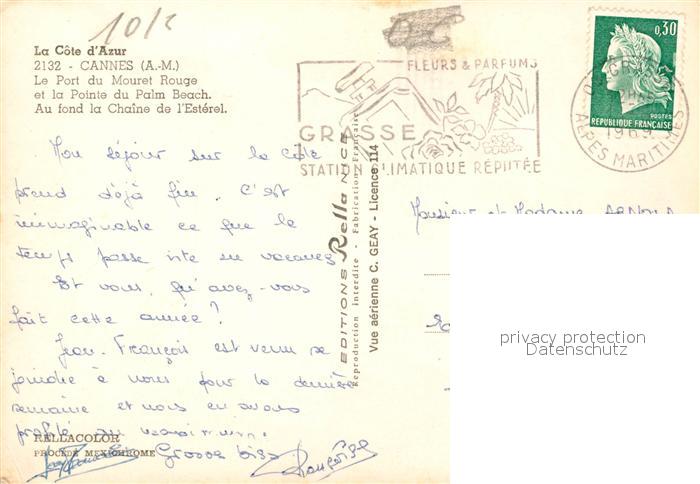 10/2
La Côte d'Azur
2132 - CANNES (A.-M.)
Le Port du Mouret Rouge
et la Pointe du Palm Beach.
Au fond la Chaîne de l'Estérel.
FLEURS & PARFUMS
GRASSE
STATION CLIMATIQUE RÉPUTÉE
0,30
POSTES
REPUBLIQUE FRANÇAISE
1969
ALPES MARITIMES
Mon séjour sur la côte
prend déjà fin. C'est
inimaginable ce que le
temps passe vite en vacances
Et vous, qu'avez-vous
fait cette année?
Jean-François est venu se
joindre à nous pour la dernière
semaine et nous en avons
profité au
Grosses bises
Françoise
EDITIONS Rella NICE
Reproduction interdite - Fabrication Française
Vue aérienne C. GEAY - Licence 114
Monsieur et Madame
privacy protection
Datenschutz
RELLACOLOR
PROCÉDÉ MEXICHROME